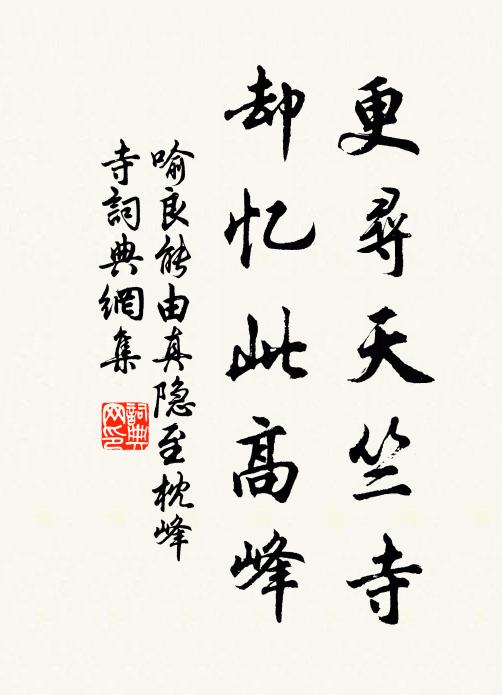 更尋天竺寺
却忆此高峰
喻良能由真隐至枕峰
寺詞典網集
詞典网印